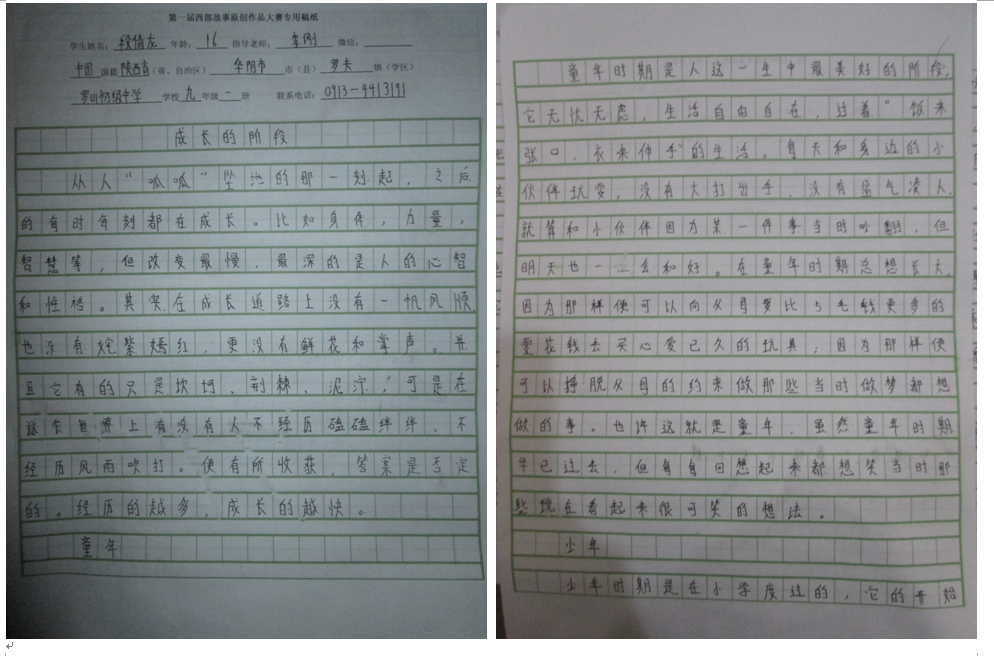 第一届西部故事原创作品大赛专用稿纸
学生姓名：段倩龙 年龄：16 指导老师：李刚 微信：
中国 国籍 陕西省（省、自治区） 华阴市 市（县） 罗夫 镇（学区）
罗山初级中学 学校 九 年级 一 班 联系电话：0913-4413191
成长的阶段
从人“呱呱”坠地的那一刻起，之后
的每时每刻都在成长。比如身体，力量，
智慧等，但改变最慢，最深的是人的心智
和性格。其实在成长道路上没有一帆风顺
也没有姹紫嫣红，更没有鲜花和掌声。并
且它有的只是坎坷、荆棘、泥泞；可是在
这个世界上有没有人不经历磕磕绊绊，不
经历风雨吹打。便有所收获，答案是否定
的。经历的越多，成长的越快。
童年
童年时期是人这一生中最美好的阶段，
它无忧无虑，生活自由自在，过着“饭来
张口，衣来伸手”的生活。每天和身边的小
伙伴玩耍，没有大打出手，没有盛气凌人，
就算和小伙伴因为某一件事当时吵翻，但
明天也一定会和好。在童年时期总想长大，
因为那样便可以向父母要比5毛钱更多的
零花钱去买心爱已久的玩具；因为那样便
可以挣脱父母的约束做那些当时做梦都想
做的事。也许这就是童年，虽然童年时期
早已过去，但每每回想起来都想笑当时那
些现在看起来很可笑的想法。
少年
少年时期是在小学度过的，它的开始